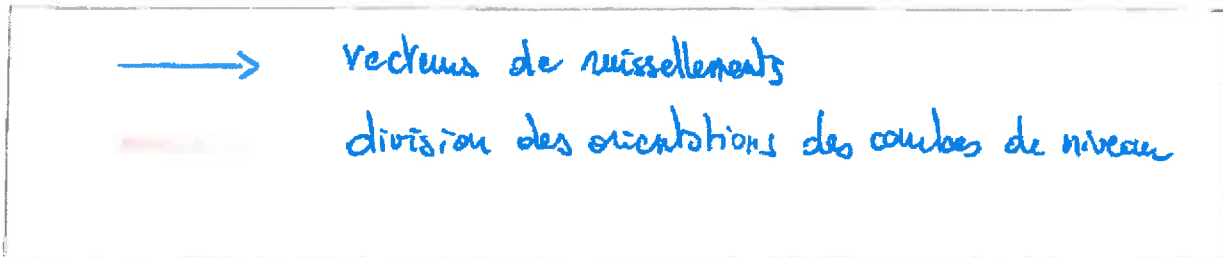 vecteurs de ruissellements
division des orientations des courbes de niveau